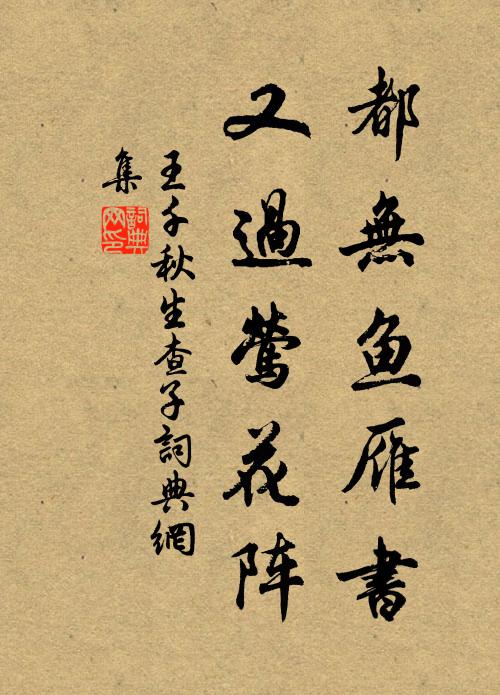 都無鱼雁書
又過莺花阵
王千秋生查子詞典網
集
詞典网印